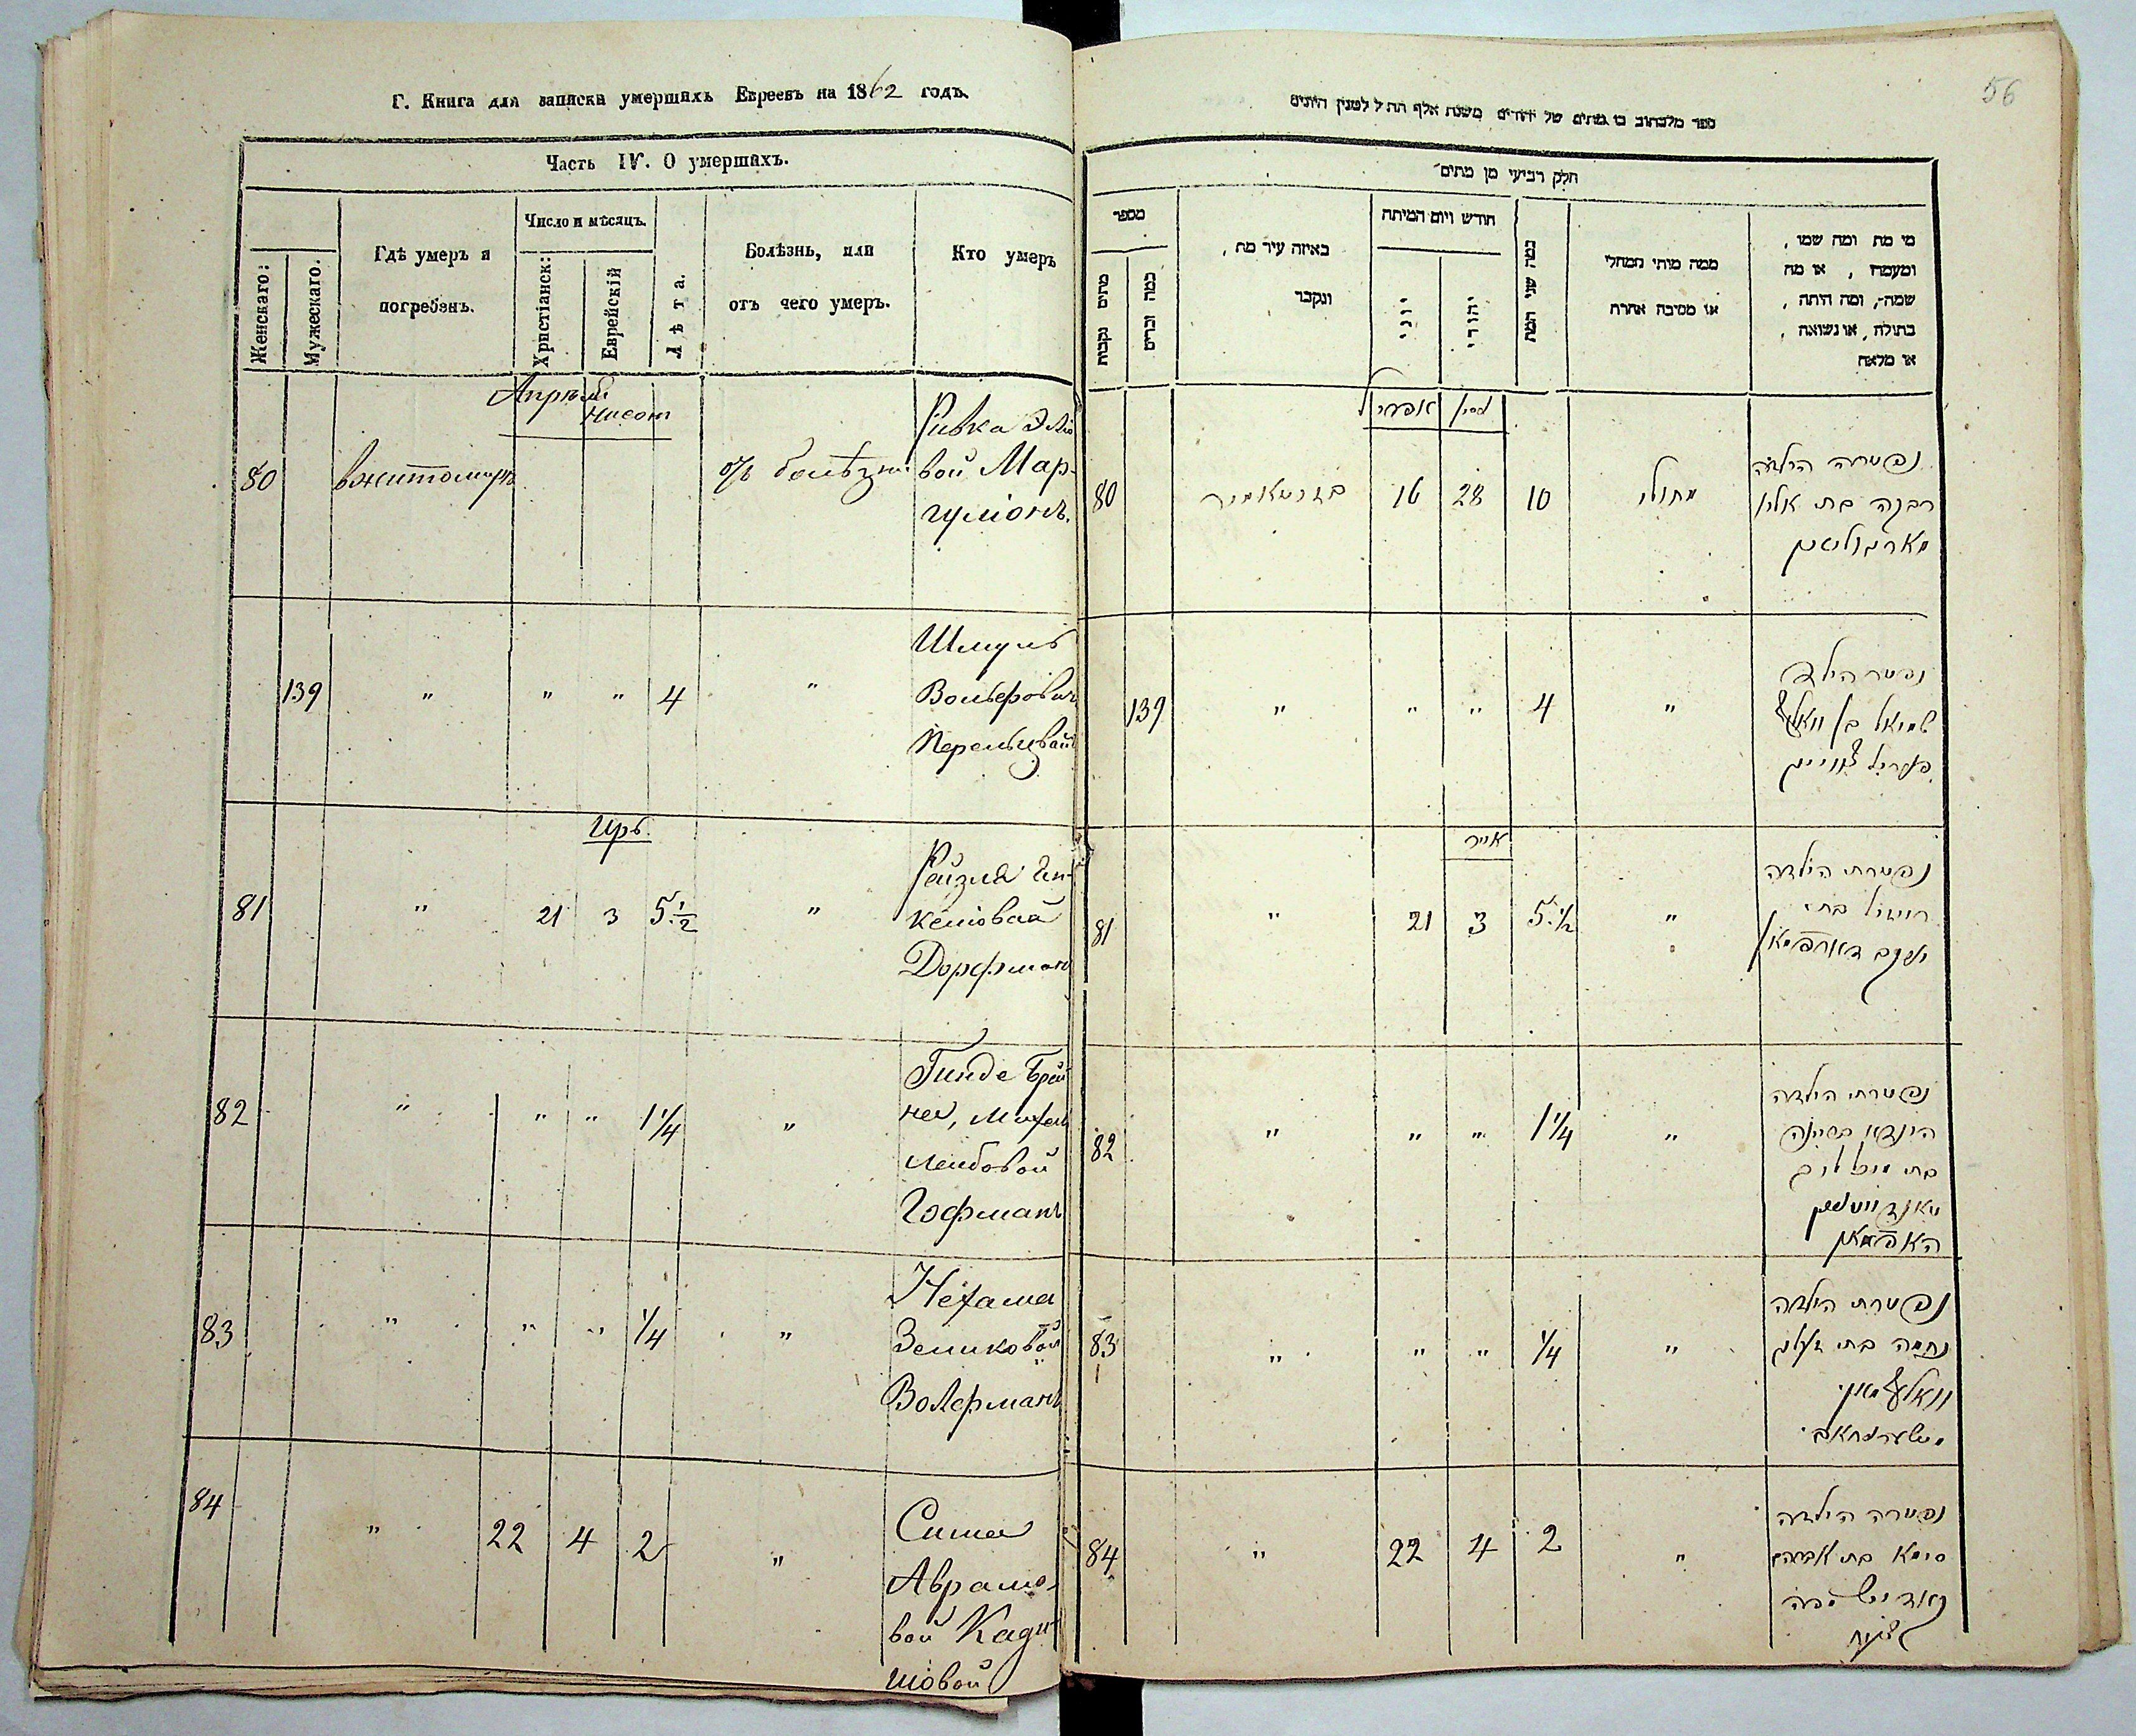 Г. Книга для записки умершихъ Евреевъ на 1862 годъ.
Часть IV. О умершихъ.
Женскаго:
Мужескаго.
Гдѣ умеръ и
погребенъ.
Число и мѣсяцъ.
Христіанск:
Еврейскій
Лѣта.
Болѣзнь, или
отъ чего умеръ.
Кто умеръ
Апрель
Нисот
80
вжитомирѣ
отъ болѣзни
Ривка Элю
вой Мар-
гулiонъ.
139 " " " 4 "
Шмуль
Вольфовичъ
Перельцвайгъ
Иръ
81 " 21 3 5 1/2 "
Райзля Ян-
келiовая
Дорфманъ
82 " " " 1 1/4 "
Гинде Брей
нея, Михель
Лейбовой
Гофманъ
83 " " " 1/4 "
Нехама
Зеликовой
Волфманъ
84 " 22 4 2 "
Сима
Абрамо-
вой Кади-
шовой
56
ספר מלכתוב בו מתים של יהודים משנת אלף תת ל למנין היונים
חלק רביעי מן מתים
מספר
מתים נקבות
כמה זכרים
באיזה עיר מת,
ונקבר
חודש ויום המיתה
יוני
יהודי
כמה שני המת
ממה מותי חמחלי
או מסיבה אחרת
מי מת ומה שמו,
ומעמדו, או מה
שמה, ומה היתה,
בתולה, או נשואה,
או מלאה
אפריל
ניסן
80
בזיטאמיר
16 28 10
מחולי
נפטרה הילדה
רבקה בת אליו
מארגוליס
139 " " " 4 "
נפטר הילד
שמואל בן וואלף
פערילצווייג
אייר
81 " 21 3 5 1/2 "
נפטרת הילדה
רייזיל בת
יעקב דארפמאן
82 " " " 1 1/4 "
נפטרת הילדה
הינדא בריינה
בת מיכל ליב
האפמאן
83 " " " 1/4 "
נפטרת הילדה
נחמה בת זעליג
וואלפמאן
84 " 22 4 2 "
נפטרה הילדה
סימא בת אברהם